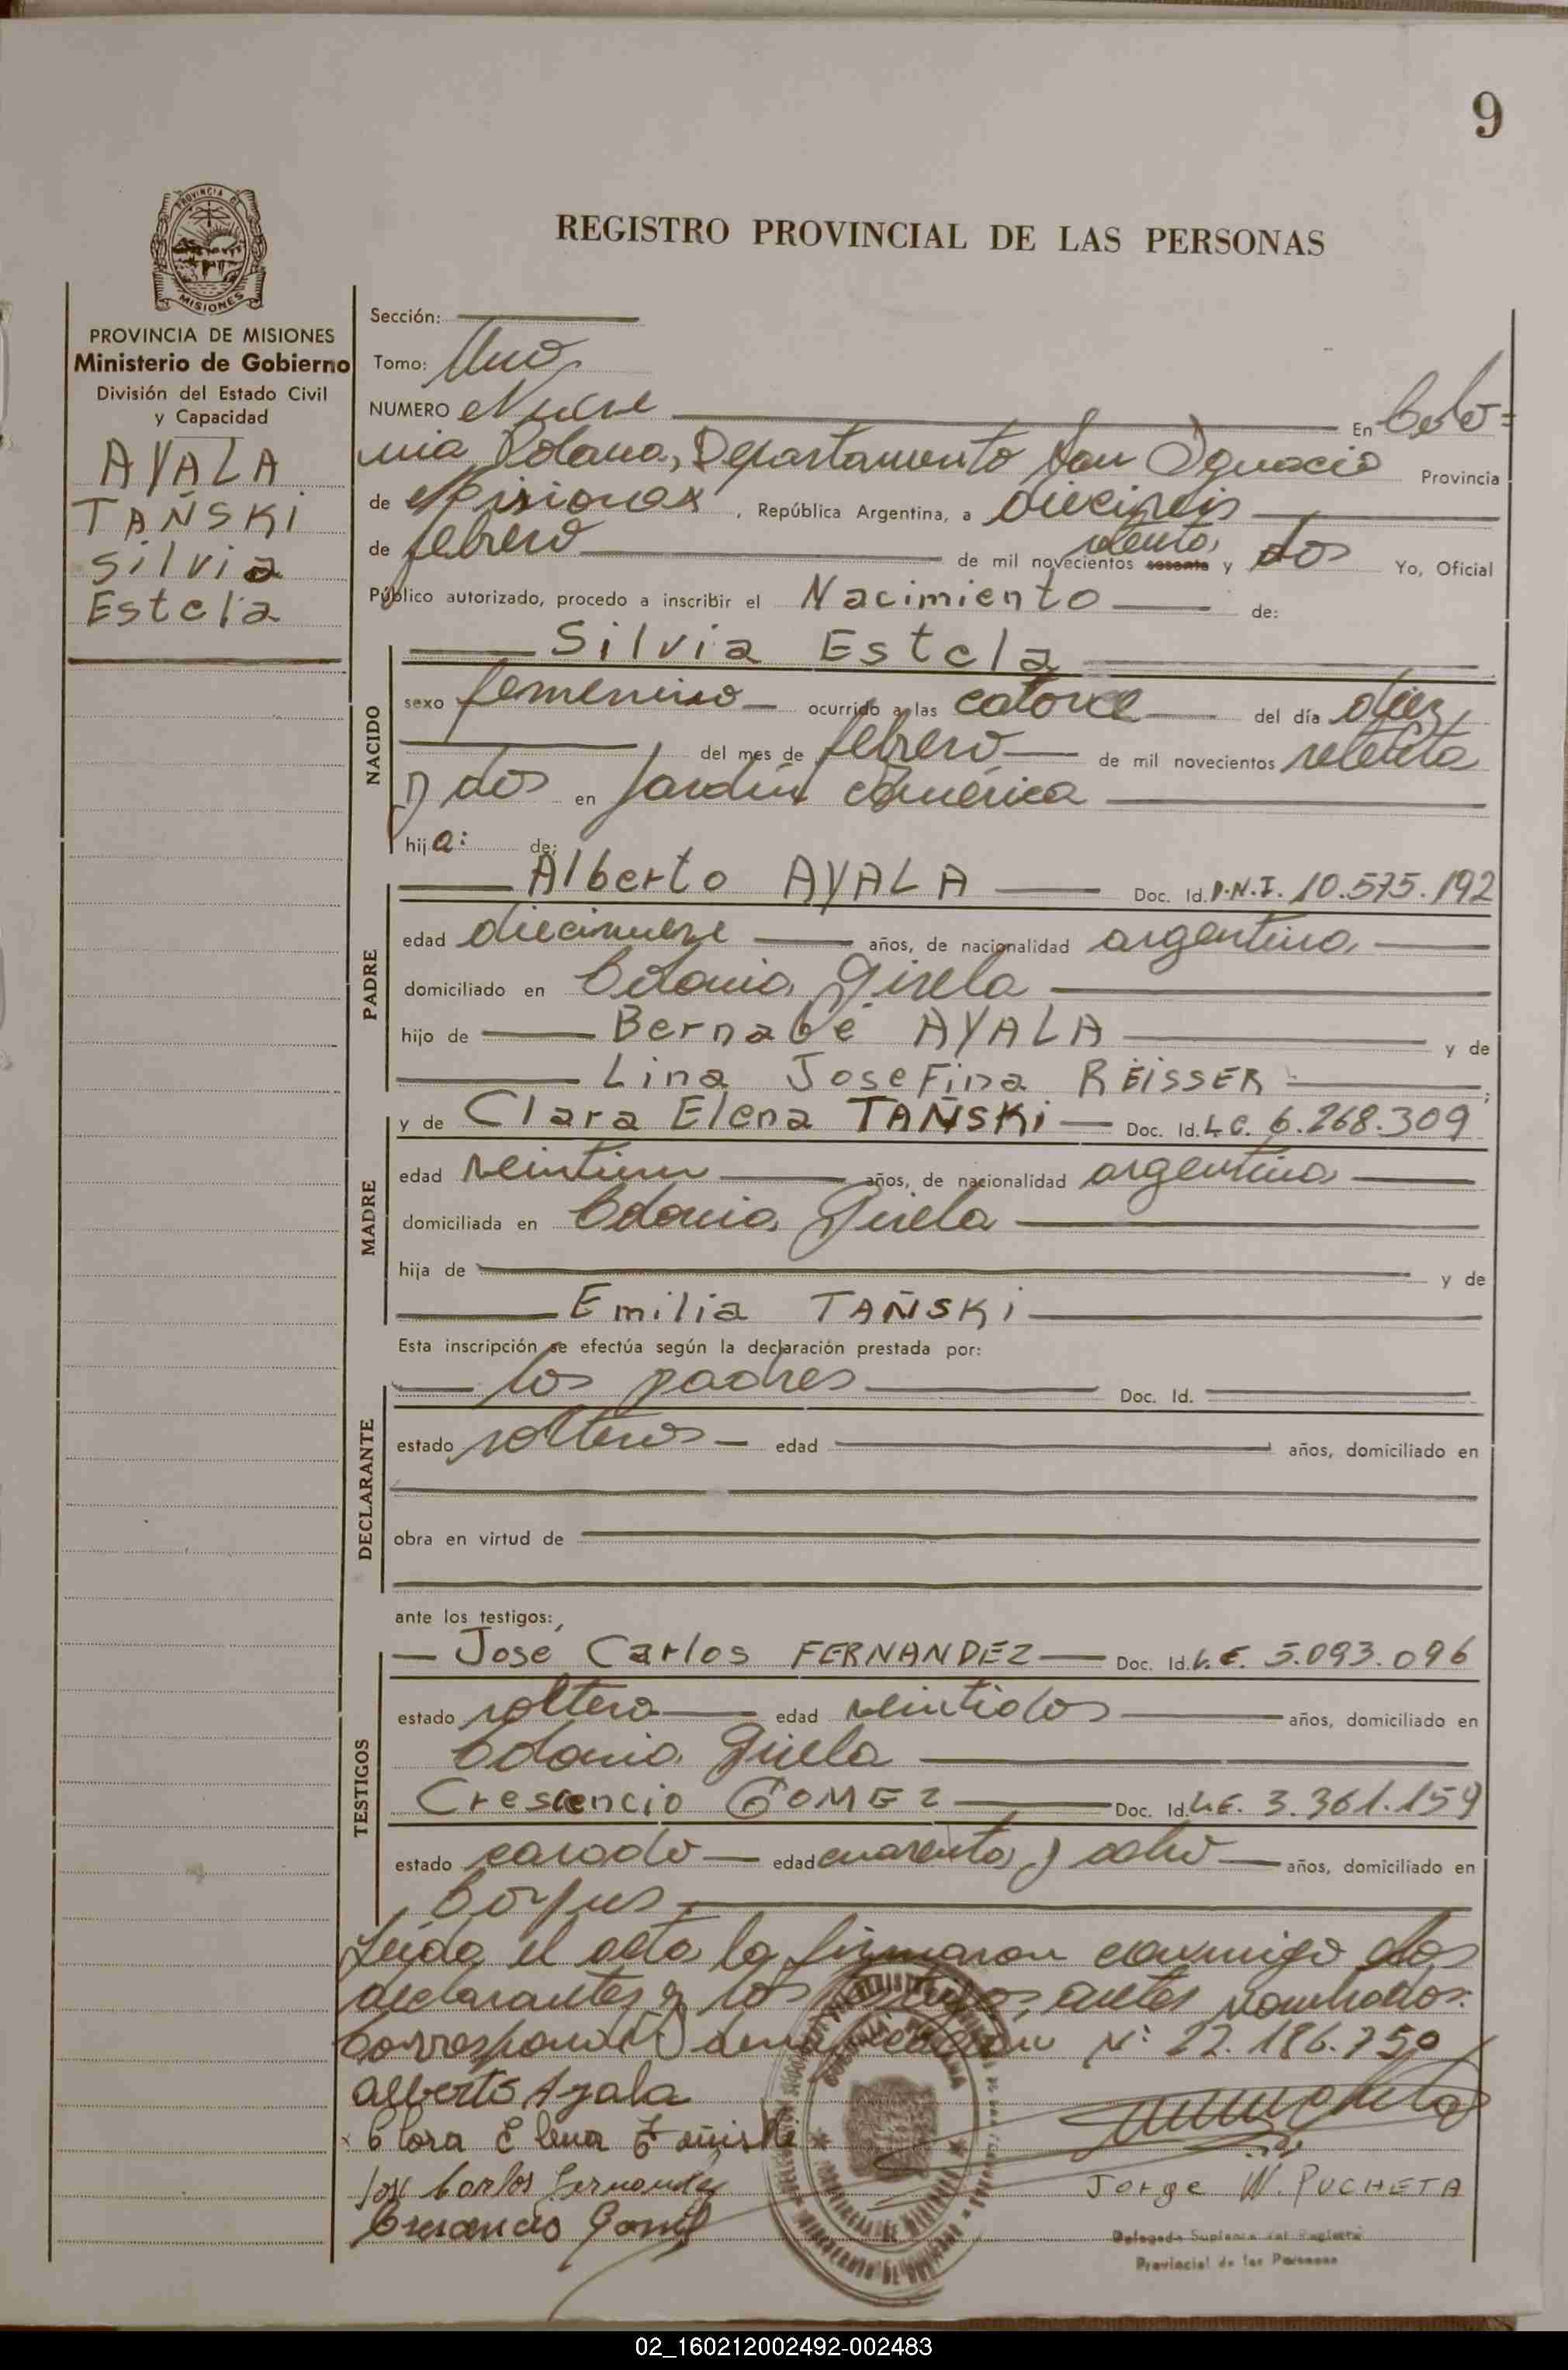 9
REGISTRO PROVINCIAL DE LAS PERSONAS
PROVINCIA DE
MISIONES
PROVINCIA DE MISIONES
Ministerio de Gobierno
División del Estado Civil
y Capacidad
AYALA
TAÑSKI
Silvia
Estela
Sección:
Tomo: Uno
NUMERO Nueve En Colo=
nia Polana, Departamento San Ignacio Provincia
de Misiones, República Argentina, a dieciseis
de febrero de mil novecientos sesenta setenta y dos Yo, Oficial
Público autorizado, procedo a inscribir el Nacimiento de:
NACIDO
Silvia Estela
sexo femenino ocurrido a las catorce del día diez
del mes de febrero de mil novecientos setenta
y dos en Jardín América
hija: de:
PADRE
Alberto AYALA Doc. Id. D.N.I. 10.575.192
edad diecinueve años, de nacionalidad argentina
domiciliado en Colonia Gisela
hijo de Bernabé AYALA y de
Lina Josefina REISSER ;
MADRE
y de Clara Elena TAÑSKI Doc. Id. L.C. 6.268.309
edad veintiun años, de nacionalidad argentina
domiciliada en Colonia Gisela
hija de y de
Emilia TAÑSKI
Esta inscripción se efectúa según la declaración prestada por:
DECLARANTE
los padres Doc. Id.
estado solteros edad años, domiciliado en
obra en virtud de
ante los testigos:
TESTIGOS
José Carlos FERNANDEZ Doc. Id. L.E. 5.093.096
estado soltero edad veintidos años, domiciliado en
Colonia Gisela
Crescencio GOMEZ Doc. Id. L.E. 3.361.159
estado casado edad cuarenta y ocho años, domiciliado en
Corpus
Leida el acta la firmaron conmigo los
declarantes y los testigos antes nombrados.
Correspondió denominación N: 22.186.750
Alberto Ayala
Clara Elena Tañiski
José Carlos Fernandez
Cresencio Gomez
Jorge W. PUCHETA
Delegado Suplente del Registro
Provincial de las Personas
02_160212002492-002483